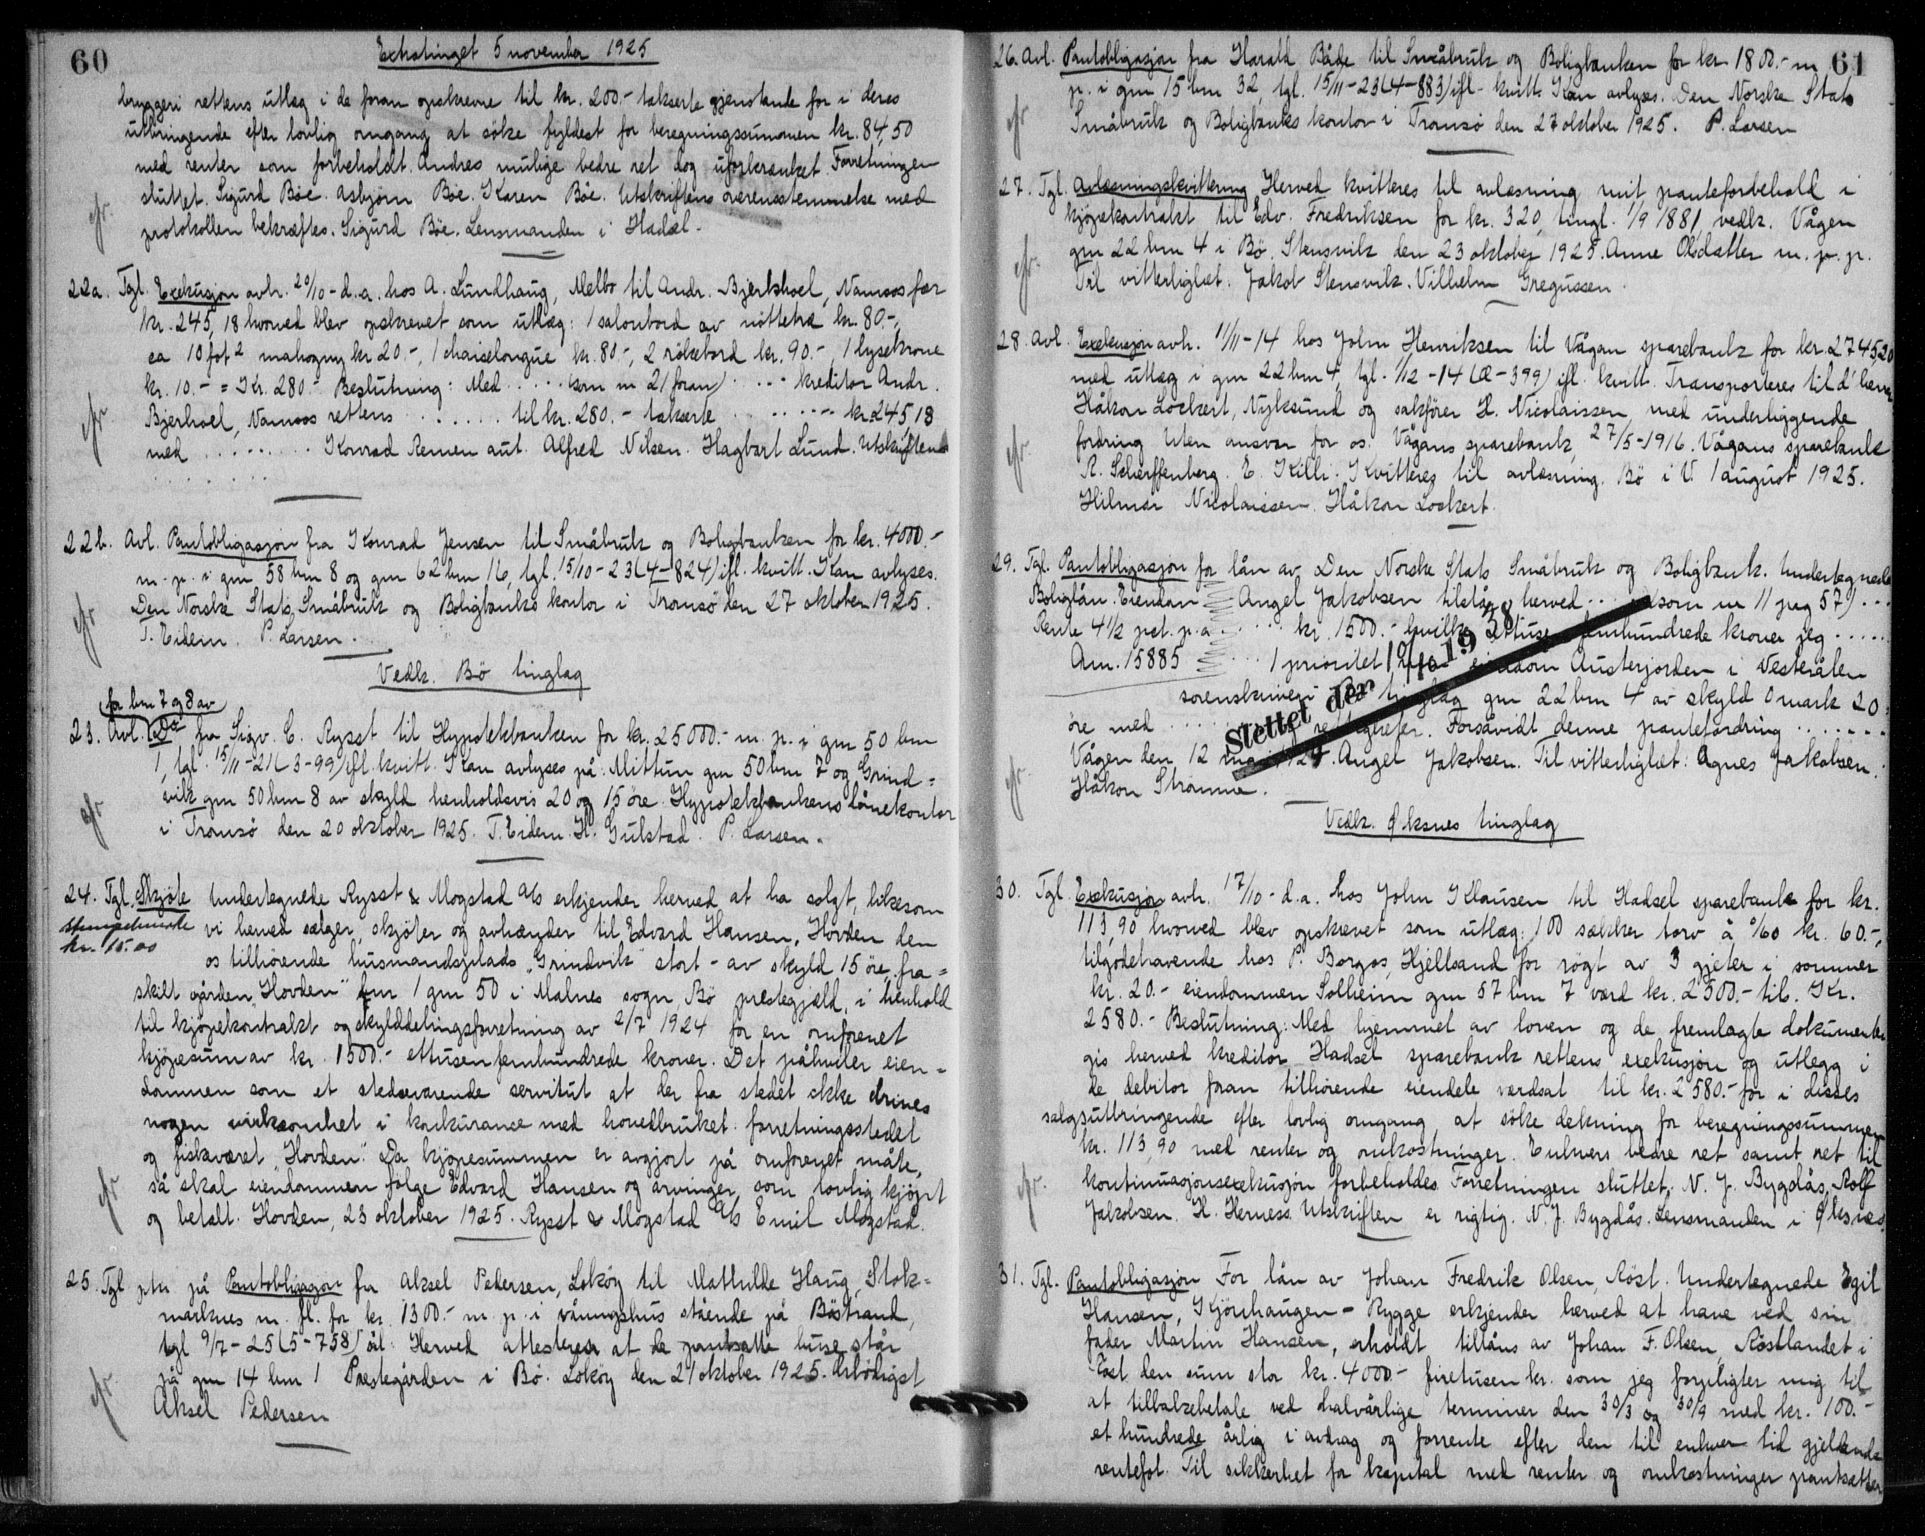 60
Extratinget 5 november 1925
bryggeri rettens utlæg i de foran opskrevne til kr. 200.- takserte gjenstande for i deres
utbringende efter lovlig omgang at söke fyldest for beregningssummen kr. 84,50
med renter som forbeholdt. Andres mulige bedre ret dog uforkrænket. Forretningen
sluttet. Sigurd Böe. Asbjörn Böe. Karen Böe. Utskriftens overensstemmelse med
protokollen bekræftes. Sigurd Böe. Lensmanden i Hadsel.
22a. Tgl. Exekusjon avh. 20/10 - d.a. hos A. Lundhaug, Melbo til Andr. Bjerkhoel, Namsos for
kr. 245,18 hvorved blev opskrevet som utlæg: 1 salonbord av nöttetræ kr. 80.-,
ca 10 fot2 mahogny kr. 20.-, 1 chaiselongue kr. 80.-, 2 rökebord kr. 90.-, 1 lysekrone
kr. 10.- = Kr. 280.- Beslutning: Med ..... (som nr 21 foran) ..... kreditor Andr.
Bjerhoel, Namsos rettens ...... til kr. 280.- takserte ...... kr. 245 18
med ......... Konrad Remen aut. Alfred Nilsen. Hagbart Lund. Utskriftens
.......
22b. Avl. Pantobligasjon fra Konrad Jensen til Småbruk og Boligbanken for kr. 4000.-
m. p. i gnr 58 bnr 8 og gnr 62 bnr 16, tgl. 15/10-23 (4-824) ifl. kvitt. Kan avlyses.
Den Norske Stats Småbruk og Boligbanks kontor i Tromsö den 27 oktober 1925.
T. Eidem. P. Larsen.
Vedk. Bö tinglag
for bnr 7 og 8 av
23. Avl. Do fra Sigv. E. Rysst til Hypotekbanken for kr. 25000.- m. p. i gnr 50 bnr
1, tgl. 15/11-21 (3-99) ifl. kvitt. Kan avlyses på Mittun gnr 50 bnr 7 og Grind=
vik gnr 50 bnr 8 av skyld henholdsvis 20 og 15 öre. Hypotekbankens lånekontor
i Tromsö den 20 oktober 1925. T. Eidem. H. Gulstad. P. Larsen.
24. Tgl. Skjöte Undertegnede Rysst & Mogstad A/s erkjender herved at ha solgt, likesom
stempelmerke vi herved sælger, skjöter og avhænder til Edvard Hansen, Hovden den
kr. 15.00 os tilhörende husmandsplads "Grindvik" stort - av skyld 15 öre fra=
skilt gården "Hovden" bnr 1 gnr 50 i Malnes sogn, Bö prestegjeld, i henhold
til kjöpekontrakt og skylddelingsforretning av 2/7 1924 for en omforenet
kjöpesum av kr. 1500.- ettusenfemhundrede kroner. Det påhviler eien=
dommen som et stedsevarende servitut at der fra stedet ikke drives
nogen virksomhet i konkurance med hovedbruket forretningsstedet
og fiskeværet "Hovden". Da kjöpesummen er avgjort på omforenet måte,
så skal eiendommen fölge Edvard Hansen og arvinger som lovlig kjöpt
og betalt. Hovden, 23 oktober 1925. Rysst & Mogstad A/s Emil Mogstad.
25. Tgl ptn på Pantobligasjon fra Aksel Pedersen, Loköy til Mathilde Haug, Stok=
marknes m. fl. for kr. 1300.- m. p. i våningshus stående på Böstrand,
tgl 9/7-25 (5-758) sål: Herved attesteres at de pantsatte huse står
på gnr 14 bnr 1 Prestegården i Bö. Loköy den 21 oktober 1925. Ærbödigst
Aksel Pedersen
61
26. Avl. Pantobligasjon fra Harald Både til Småbruk og Boligbanken for kr 1800.- m
p. i gnr 15 bnr 32, tgl. 15/11-23 (4-883) ifl. kvitt. Kan avlyses. Den Norske Stats
Småbruk og Boligbanks kontor i Tromsö den 27 oktober 1925. P. Larsen
27. Tgl. Avlæsningskvittering Herved kvitteres til avlæsning mit panteforbehold i
kjöpekontrakt til Edv. Fredriksen for kr. 320, tingl. 1/9 1881, vedk. Vågen
gnr 22 bnr 4 i Bö. Stensvik den 23 oktober 1925. Anne Olsdatter m. p. p.
Til vitterlighet: Jakob Stensvik. Vilhelm Gregussen.
28. Avl. Exekusjon avh. 11/11-14 hos John Henriksen til Vågan sparebank for kr. 2745,20
med utlæg i gnr 22 bnr 4, tgl. 1/12-14 (Æ-399) ifl. kvitt. Transporteres til d'herrer
Håkon Lockert, Nyksund og sakförer H. Nicolaissen med underliggende
fordring uten ansvar for os. Vågans sparebank, 27/5-1916. Vågans sparebank
R. Scherffenberg. E. Killi. Kvitteres til avlæsning. Bö i V. 1 august 1925.
Hilmar Nicolaissen. Håkon Lockert.
29. Tgl. Pantobligasjon for lån av Den Norske Stats Småbruk og Boligbank. Undertegnede
Boliglån. Eiendom Angel Jakobsen tilstår herved ... (som nr 11 pag 57) ...
Rente 4 1/2 pct. p.a. ..... kr. 1500.- hvilke ettusen femhundrede kroner jeg .....
Anr. 15885 .... 1 prioritet i min eiendom Austerjorden i Vesterålen
sorenskriveri Bö tinglag gnr 22 bnr 4 av skyld 0 mark 20
öre med ....... rettigheter. Forsåvidt denne pantefordring .......
Slettet den 10/10 1938
Vågen den 12 1925. Angel Jakobsen. Til vitterlighet: Agnes Jakobsen.
Håkon Strömme.
Vedk. Öksnes tinglag
30. Tgl Exekusjon avh. 17/10 - d.a. hos John Klausen til Hadsel sparebank for kr.
113,90 hvorved blev opskrevet som utlæg: 100 sækker torv à 0/60 kr. 60.-,
tilgodehavende hos P. Borgos, Hjellsand for rögt av 3 gjeter i sommer
kr. 20.- eiendommen Solheim gnr 57 bnr 7 værd kr. 2500.- til. Kr.
2580.- Beslutning: Med hjemmel av loven og de fremlagte dokumenter
gis herved kreditor Hadsel sparebank rettens exekusjon og utlegg i
de debitor foran tilhörende eiendele værdsat til kr. 2580.- for i disses
salgsutbringende efter lovlig omgang at söke dekning for beregningssummen
kr. 113,90 med renter og omkostninger. Enhvers bedre ret samt ret til
kontinuasjonsexekusjon forbeholdes. Forretningen sluttet. N. J. Bygdås. Rolf
Jakobsen. H. Herness. Utskriften er rigtig. N. J. Bygdås. Lensmanden i Öksnes.
31. Tgl. Pantobligasjon For lån av Johan Fredrik Olsen, Röst. Undertegnede Egil
Hansen, Kjönhaugen - Rygge erkjender herved at have ved sin
fader Martin Hansen, erholdt tillåns av Johan F. Olsen, Röstlandet i
Röst den sum stor kr. 4000.- firetusen kr. som jeg forpligter mig til
at tilbakebetale ved halvårlige terminer den 30/3 og 30/9 med kr. 100.-
et hundrede årlig i avdrag og forrente efter den til enhver tid gjeldende
rentefot. Til sikkerhet for kapital med renter og omkostninger pantsætter